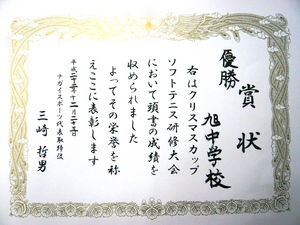 賞状
優勝
旭中学校
右はクリスマスカップ
ソフトテニス研修大会
において頭書の成績を
収められました
よってその栄誉を称
えここに表彰します
平成二十三年十二月二十三日
ナガイスポーツ代表取締役
三崎哲男